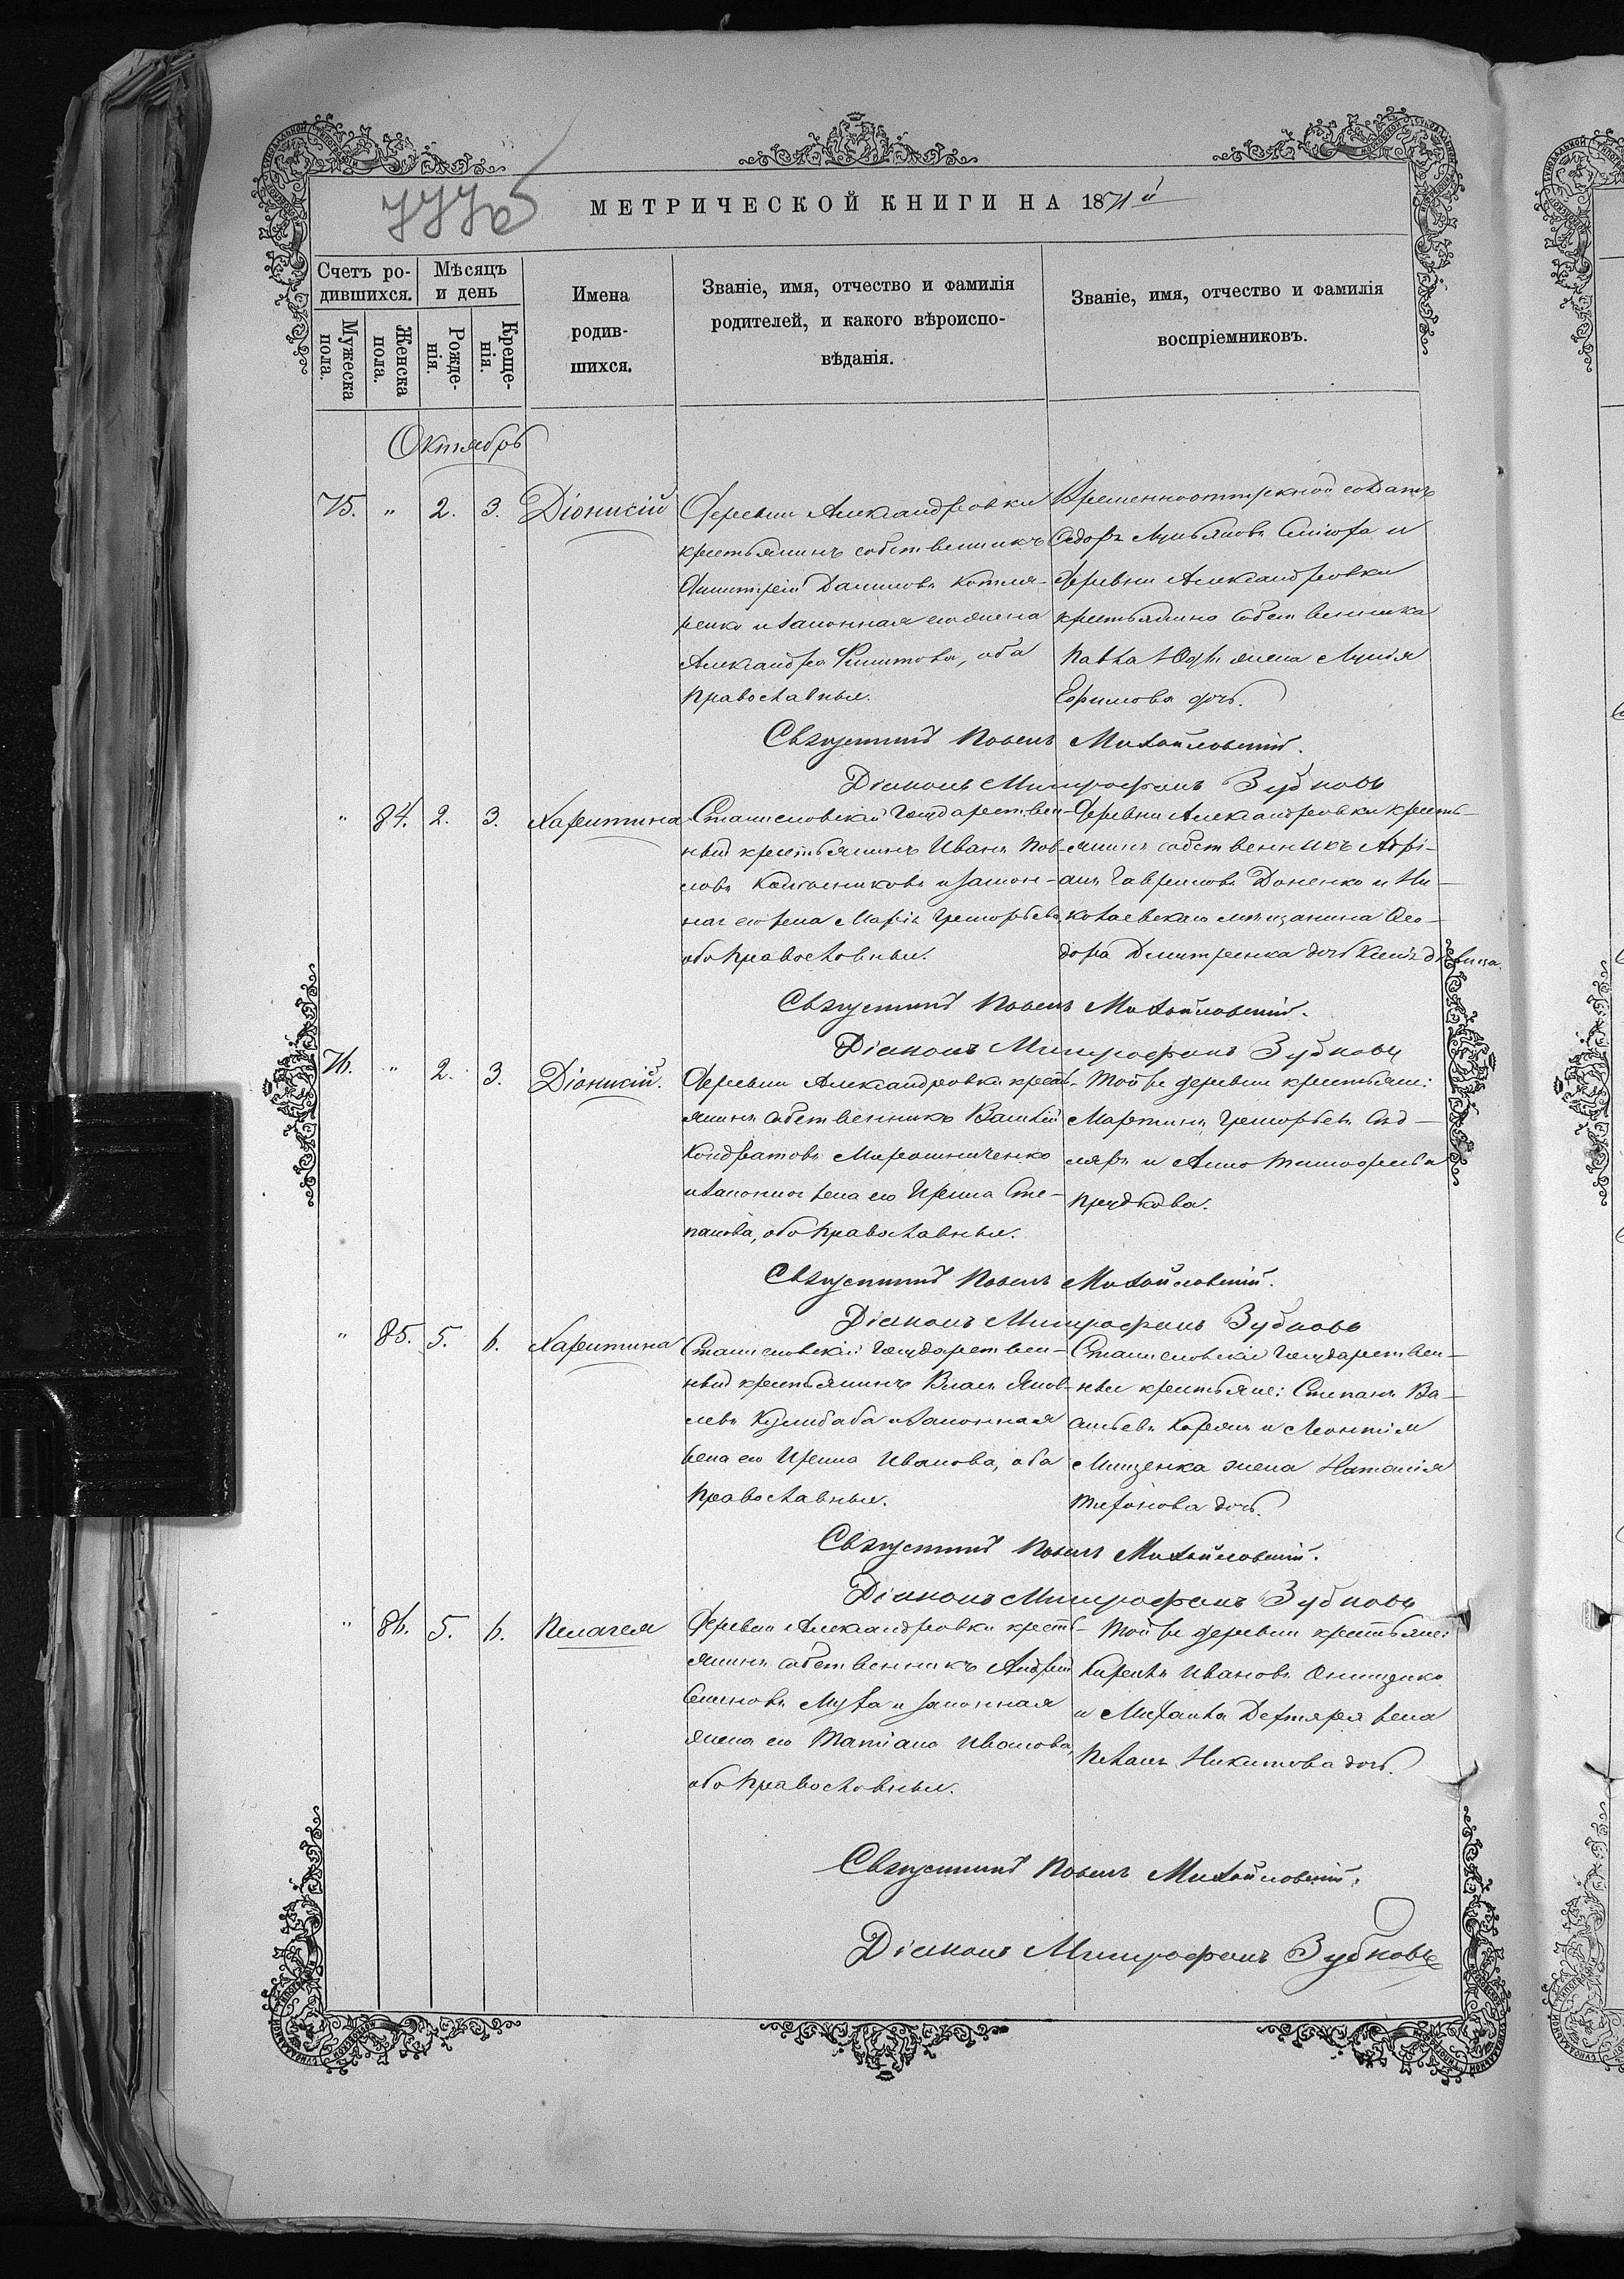 МЕТРИЧЕСКОЙ КНИГИ НА 1871й
Счетъ ро-
дившихся.
Мѣсяцъ
и день
Мужеска
пола.
Женска
пола.
Рожде-
нія.
Креще-
нія.
Имена
родив-
шихся.
Званіе, имя, отчество и фамилія
родителей, и какого вѣроиспо-
вѣданія.
Званіе, имя, отчество и фамилія
воспріемниковъ.
Октябрь
75. " 2. 3. Діонисій
Деревни Александровки
крестьянинъ собственникъ
Димитрій Даниловъ Котля-
ренко и законная его жена
Александра Филипова, оба
православные.
Временноотпускной солдатъ
Федоръ Лукьяновъ и
деревни Александровки
крестьянина собственника
Павла жена Лукія
Ефимова дочь.
Священникъ Павелъ Михайловскій.
Діаконъ Митрофанъ Зубковъ
" 84. 2. 3. Харитина
Станиславскій государствен-
ный крестьянинъ Иванъ Пав-
ловъ Колесниковъ и закон-
ная его жена Марія Григорьева
оба православные.
Деревни Александровки кресть-
янинъ собственникъ Адрі-
анъ Гавриловъ Доненко и Ни-
колаевскаго мѣщанина Ѳео-
дора Дмитренка дочь дѣвица.
Священникъ Павелъ Михайловскій.
Діаконъ Митрофанъ Зубковъ
76. " 2. 3. Діонисій.
Деревни Александровки кресть-
янинъ собственникъ Василій
Кондратовъ Мирошниченко
и законная жена его Ирина Сте-
панова, оба православные.
Той же деревни крестьяне:
Мартинъ Григорьевъ Сто-
ляръ и Анна Тимофеева
Прудкова.
Священникъ Павелъ Михайловскій.
Діаконъ Митрофанъ Зубковъ
" 85. 5. 6. Харитина
Станиславскій государствен-
ный крестьянинъ Власъ Яков-
левъ Кулибаба и законная
жена его Ирина Иванова, оба
православные.
Станиславскіе государствен-
ные крестьяне: Степанъ Ва-
сильевъ и Леонтія
Мищенка жена Наталія
Тихонова дочь.
Священникъ Павелъ Михайловскій.
Діаконъ Митрофанъ Зубковъ
" 86. 5. 6. Пелагея
Деревни Александровки кресть-
янинъ собственникъ Андрей
Семеновъ Муха и законная
жена его Татіана Иванова,
оба православные.
Той же деревни крестьяне:
Кирилъ Ивановъ Онищенко
и Михаила Дехтяря жена
Никитова дочь.
Священникъ Павелъ Михайловскій.
Діаконъ Митрофанъ Зубковъ